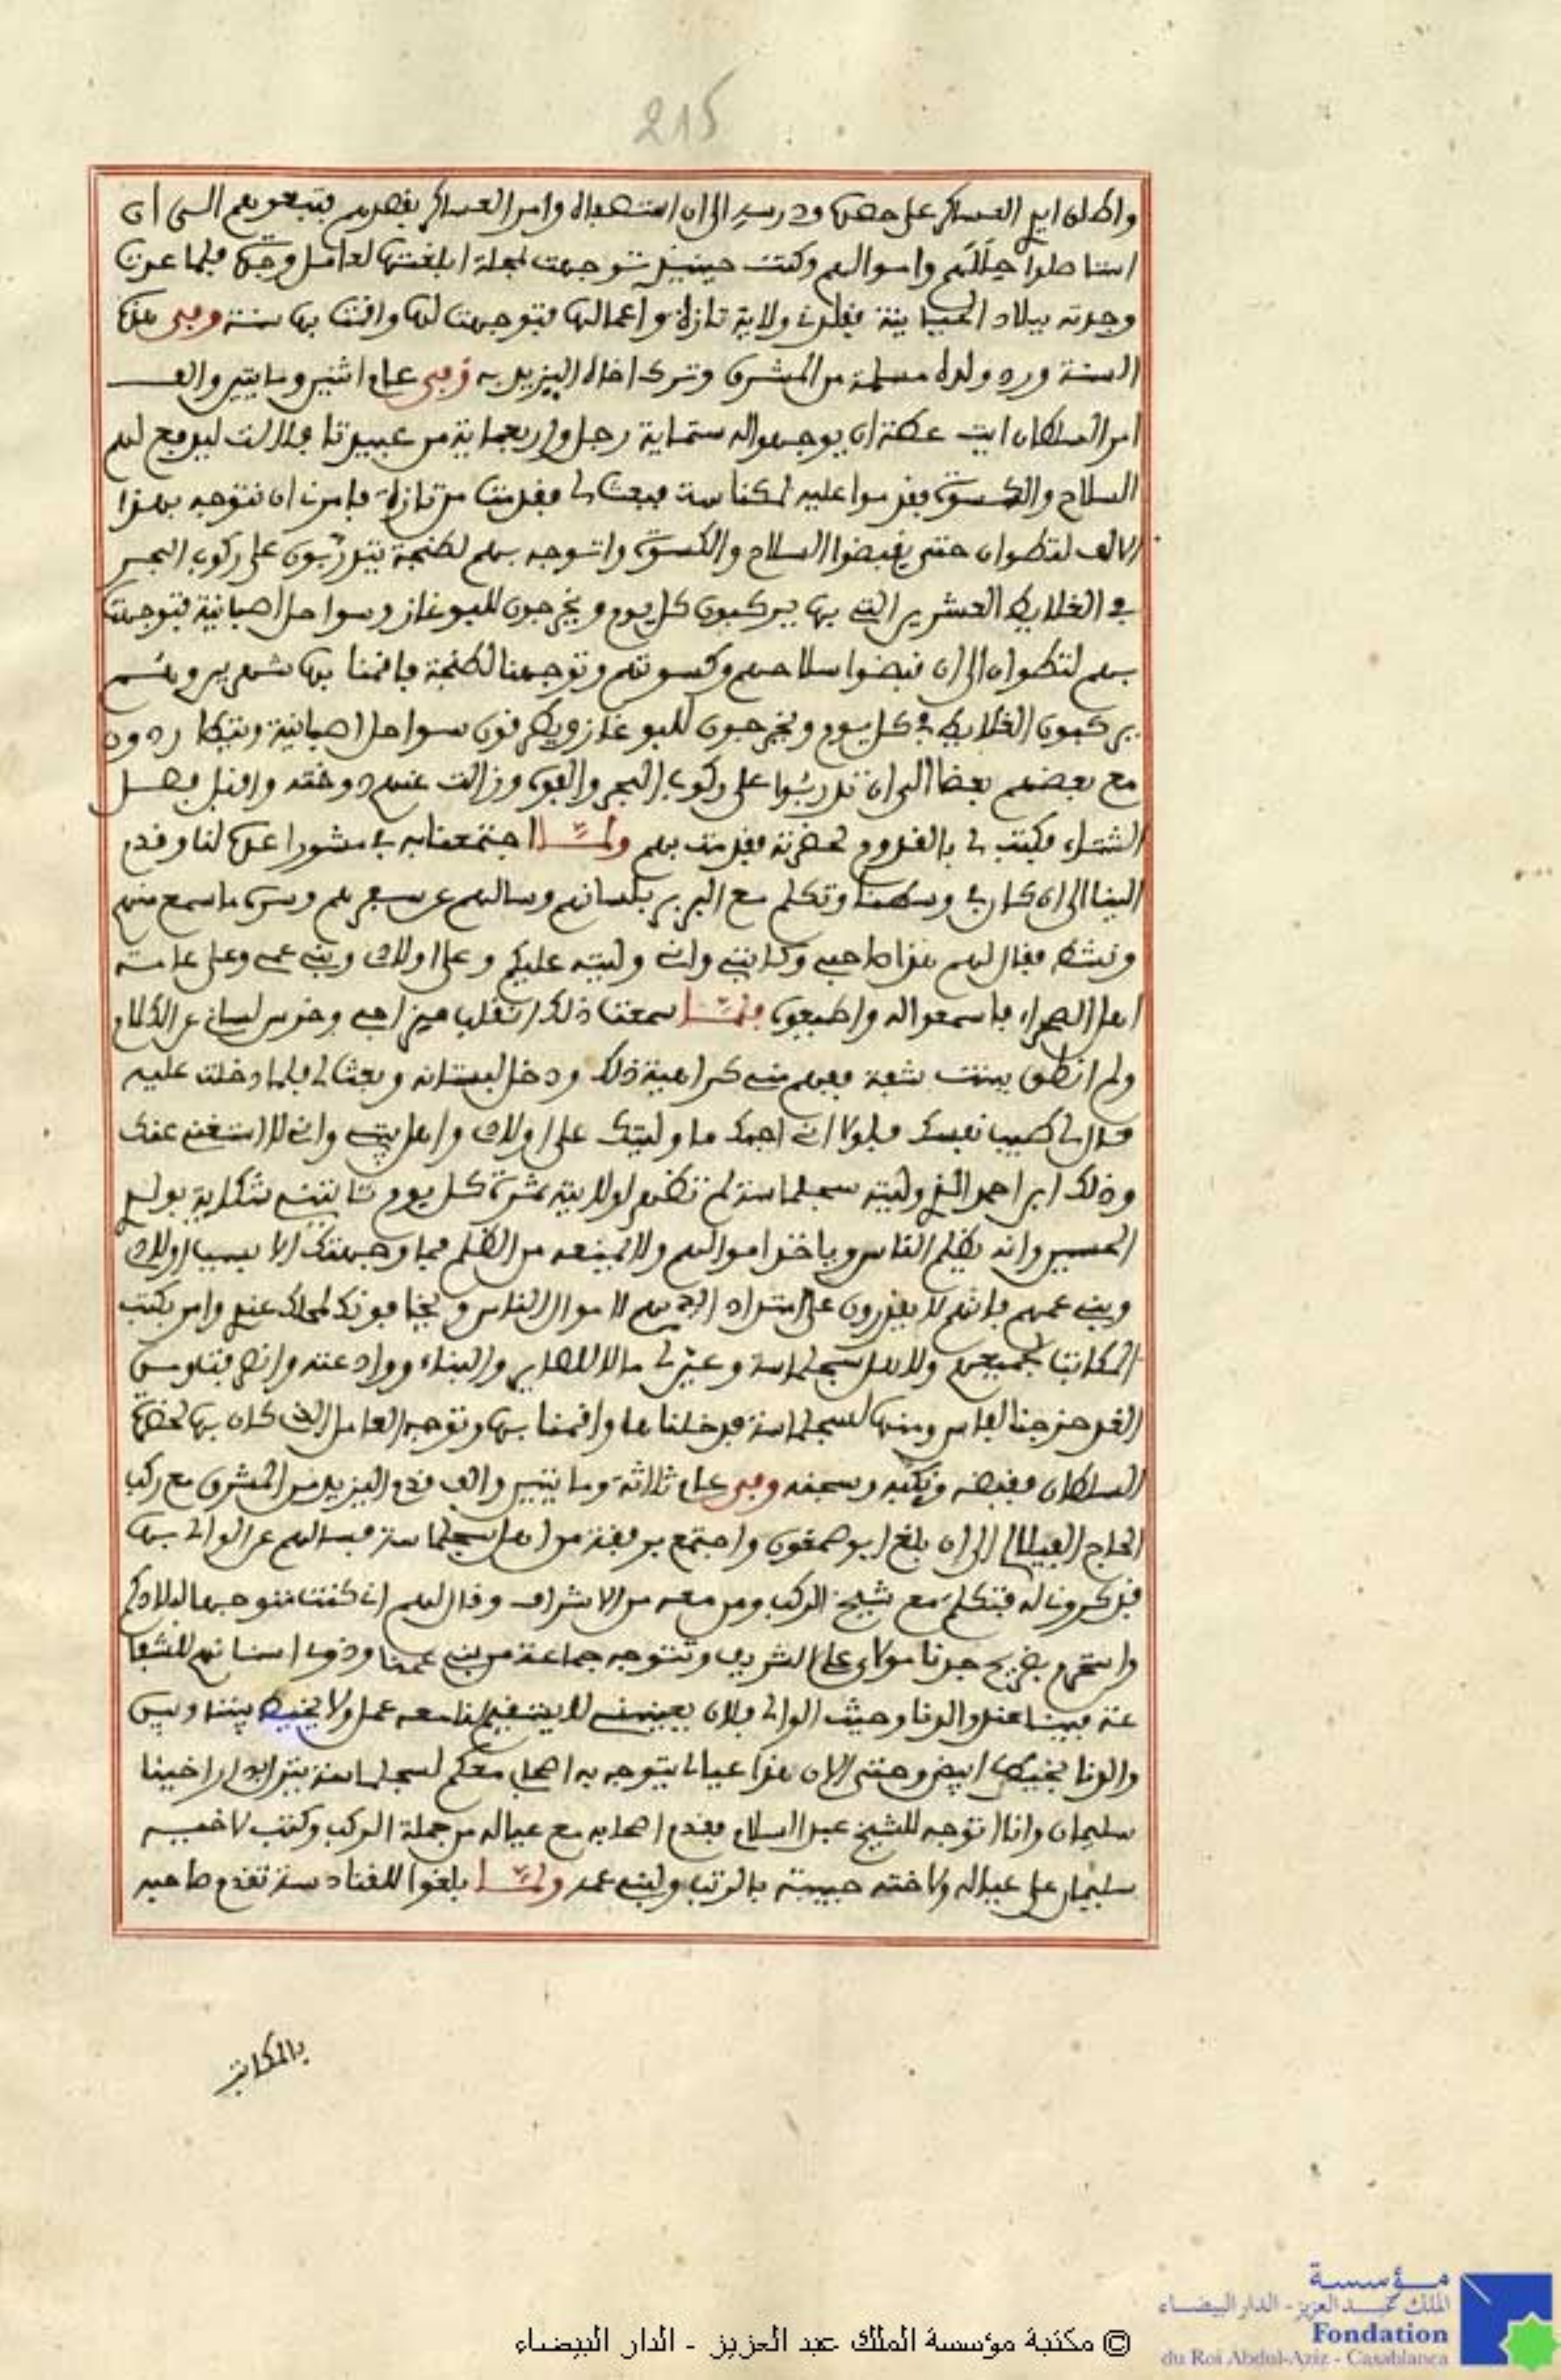 215
واطلق ايدي العساكر على حصن ودريد الى ان استصفاه وامر العساكر بقصدهم فتبعوهم الى ان
استاصلوا حللهم واموالهم وكنت حينئذ توجهت لمحلة ابلغتها لعامل وجدة فلما عدت
وجدته ببلاد الحياينة فقلدني ولاية تازة واعمالها فتوجهت لها واقمت بها سنة وفى هذه
السنة ورد ولده مسلمة من المشرق وترك اخاه اليزيد به وفى عام اثنين ومايتين والف
امر السلطان ايت عطة ان يوجهوا له ستماية رجل واربعماية من عبيد تافلالت ليدفع لهم
السلاح والكسوة فقدموا عليه لمكناسة فبعث لي فقدمت من تازة فامرني ان نتوجه بهذا
الالف لتطوان حتى يقبضوا السلاح والكسوة واتوجه بهم لطنجة يتدربون على ركوب البحر
في الغلايط العشرين التي بها يركبون كل يوم ويخرجون للبوغاز وسواحل اصبانية فتوجهت
بهم لتطوان الى ان قبضوا سلاحهم وكسوتهم وتوجهنا لطنجة فاقمنا بها شهرين وهم
يركبون الغلايط في كل يوم ويخرجون للبوغاز ويطرفون سواحل اصبانية ويتطاردون
مع بعضهم بعضا الى ان تدربوا على ركوب البحر والفوه وزالت عنهم دوخته واقبل فصل
الشتاء فكتب لي بالقدوم لحضرته فقدمت بهم ولما اجتمعنا به في مشور اعدها لنا وقدم
الينا الى ان كان في وسطنا وتكلم مع البربر بلسانهم وسالهم عن سفرهم وسره ما سمع منهم
ونشط فقال لهم هذا صاحبي وكاتبي واني وليته عليكم وعلى اولادي وبني عمي وعلى عامة
اهل الصحراء فاسمعوا له واطيعوه فلما سمعت ذلك انقلب مزاجي وخرس لساني عن الكلام
ولم انطق ببنت شفة ففهم مني كراهية ذلك ودخل لبستانه وبعث لي فلما دخلت عليه
قال لي طيب نفسك فلولا اني احبك ما وليتك على اولادي واهل بيتي واني لا استغني عنك
وذلك ابراحمو الذي وليته سجلماسة لم تظهر لولايته ثمرة كل يوم تاتيني شكاية بولدي
الحسين وانه يظلم الناس وياخذ اموالهم ولا يمنعه من الظلم فما وجهتك الا بسبب اولادي
وبني عمهم فانهم لا يقدرون على امتداد ايديهم لاموال الناس ويخافونك لمحلك عندي وامر بكتب
المكاتب لجميعهم ولاهل سجلماسة وعين لي مالا للصاير والبناء ووادعته وانصرفت ومن
الغد خرجنا لفاس ومنها لسجلماسة فدخلناها واقمنا بها وتوجه العامل الذي كان بها لحضرة
السلطان فقبضه ونكبه وسجنه وفى عام ثلاثة ومايتين والف قدم اليزيد من المشرق مع ركب
الحاج الفيلالي الى ان بلغ ابوصمغون واجتمع برفقة من اهل سجلماسة فسالهم عن الوالي بها
فذكروني له فتكلم مع شيخ الركب ومن معه من الاشراف وقال لهم اني كنت نتوجه لبلادكم
واستحرم بضريح جدنا مولاي علي الشريف ونتوجه جماعة من بني عمنا وذوي اسنانهم للشفا
عة فينا عند والدنا وحيث الوالي فلان بعينه لا يستقيم لنا معه عمل ولا يخيط بيننا وبين
والدنا بخيط ابيض وحتى الان هذا عيالي يتوجه به اصحابي معكم لسجلماسة بنزل بدار اخينا
سليمان وانا اتوجه للشيخ عبد السلام فقدم اصحابه مع عياله من جملة الركب وكتب لاخيه
سليمان على عياله ولاخته حبيبة بالرتب ولبني عمه ولما بلغوا للقنادسة تقدم صاحبه
بالمكاتب
مؤسسة
الملك عبد العزيز - الدار البيضاء
Fondation
du Roi Abdul-Aziz - Casablanca
© مكتبة مؤسسة الملك عبد العزيز - الدار البيضاء